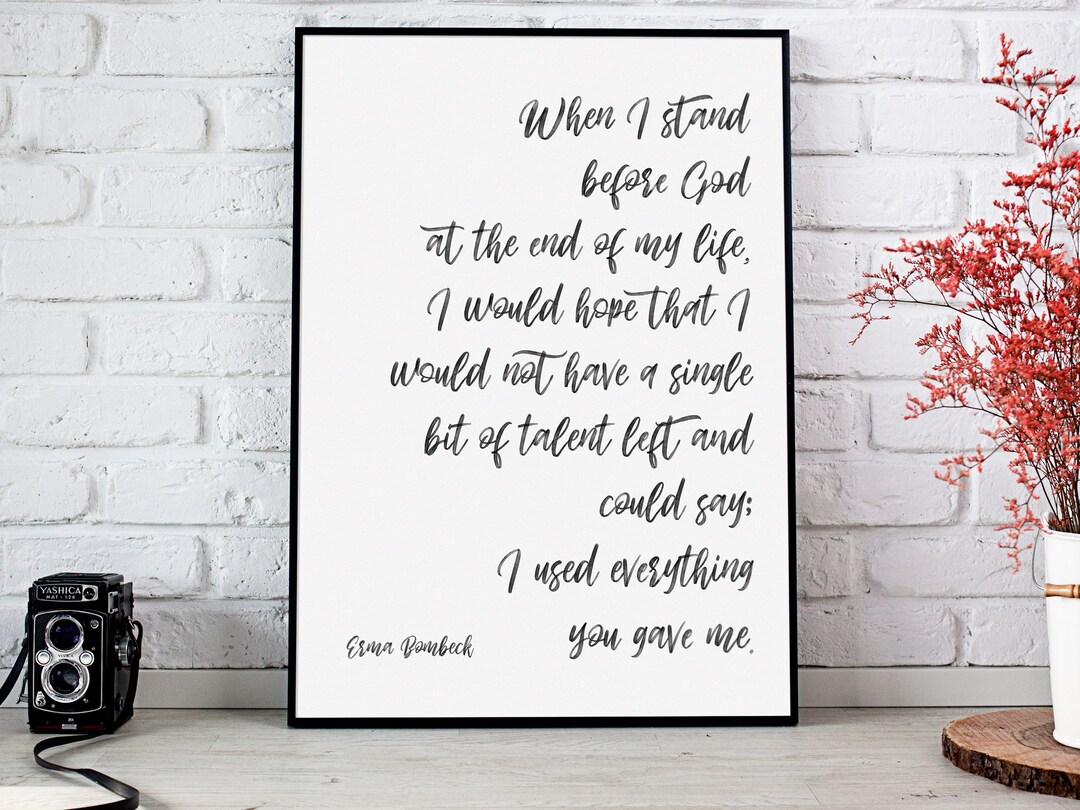 When I stand
before God
at the end of my life,
I would hope that I
would not have a single
bit of talent left and
could say;
I used everything
you gave me.
Erma Bombeck
YASHICA
MAT-124